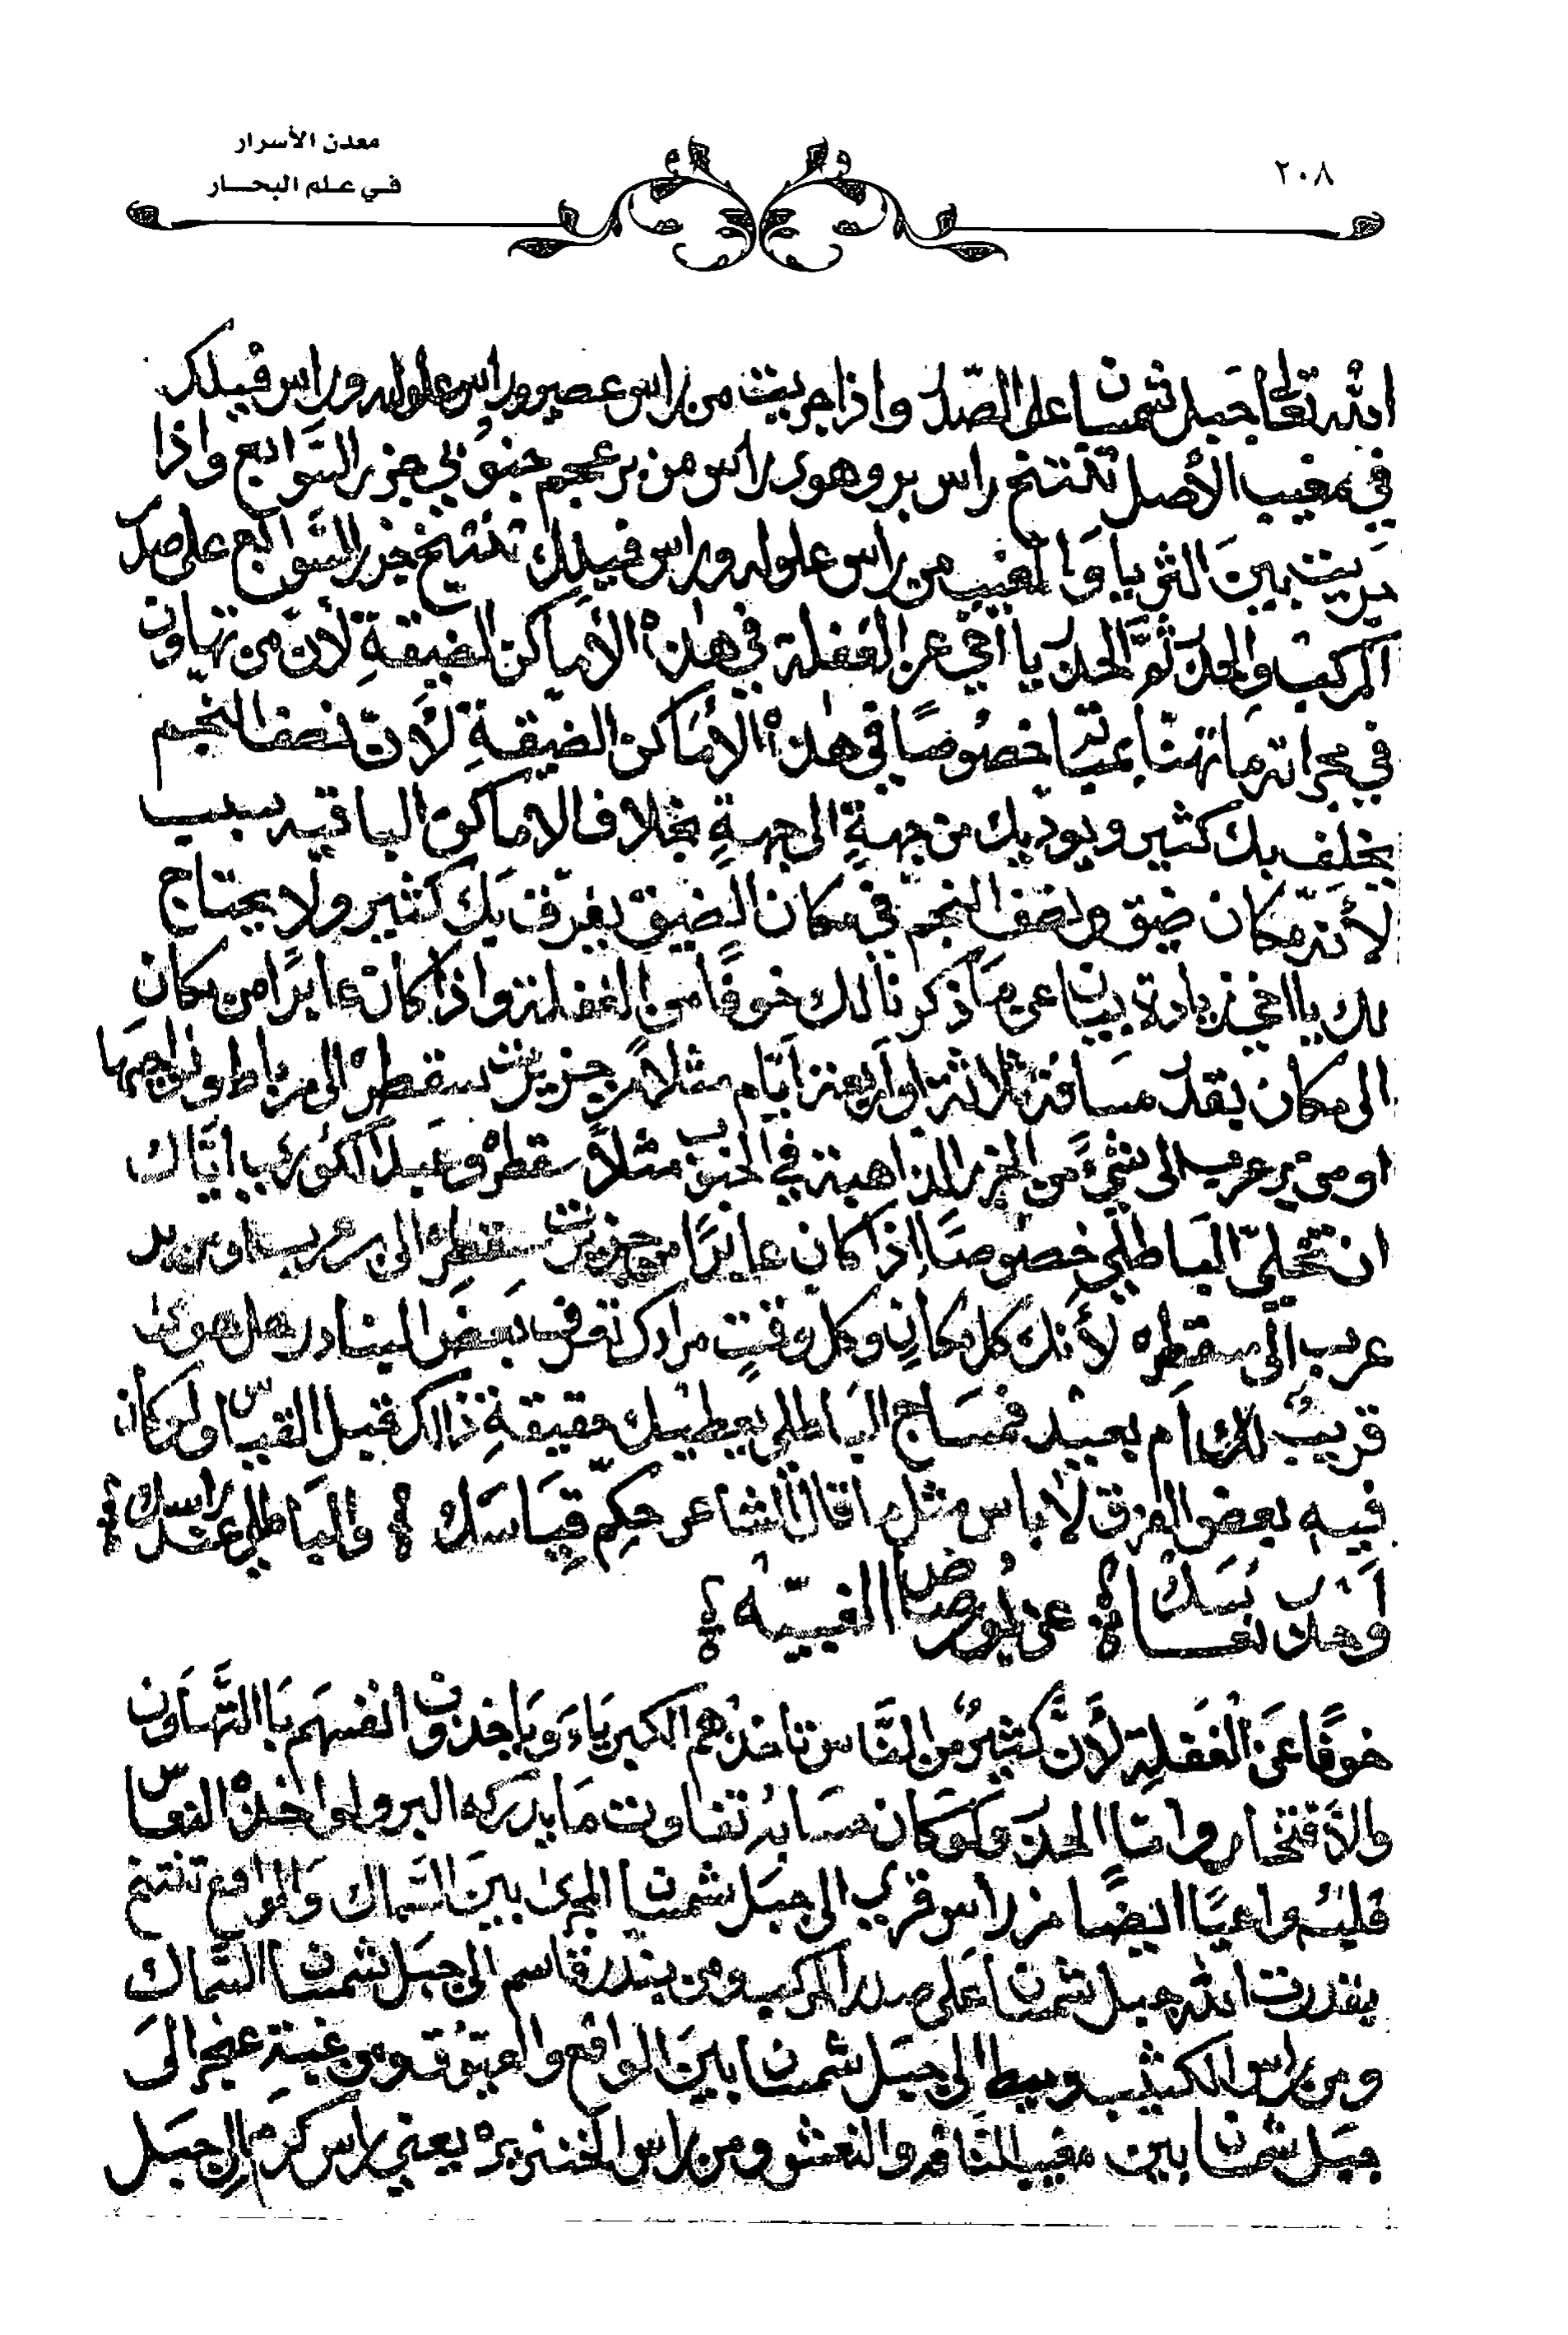 معدن الأسرار
في علم البحار
٢٠٨
الله تعالى جبل شمسان على الصدر واذا جريت من راس عصير وراس علوله وراس فيلك
في مغيب الأصل تنتخ راس بر وهوى راس من بر عجم جنوبي جزر السوابع واذا
جريت بين الثريا والمغيب من راس علوله وراس فيلك تنتخ جزر السوابع على صدر
المركب والحذر ثم الحذر يا اخي عن الغفلة في هذه الأماكن الضيقة لأن من تهاون
في مجراته ما تهنا بمبتا خصوصًا في هذه الأماكن الضيقة لأن نصف النجم
يخلف بك كثير ويوديك من جهةٍ الى جهةٍ بخلاف الاماكن الباقيه سبب
لأنه مكان ضيق ونصف النجم في مكان الضيق يفرق بك كثير ولا يحتاج
لك يا اخي زيادة بيان عن ما ذكرنا لك خوفًا من الغفلة واذا كان عابرًا من مكان
الى مكان بقدر مسافة ثلاثة او اربعة ايام مثلا من جزيرت سقطره الى مرباط ونواحيها
او من بر عرب الى شيءٍ من الجزر الذاهبة في الجنوب مثلاً سقطره وعبد الكوري اياك
ان تخلي الباطلي خصوصًا اذا كان عابرًا من جزيرت سقطره الى بر عرب او من بر
عرب الى سقطره لأنك كل مكانٍ وكل وقتٍ مرادك تعرف بعض البنادر هل هوى
قريبٌ لك ام بعيد فمساج الباطلي يعطيك حقيقةِ ذالك قبل القياس ولو كان
فيه بعض الفرق لا باس مثل ما قال الشاعر حكم قياسك والباطلي عند راسك
وحذر نعاسك عن
خوفًا عن الغفلة لأن كثيرٌ من الناس تاخذهم الكبرياء ويأخذون انفسهم باالتهاون
والافتخار وامنا الحذر ولو كان حسابه تفاوت ما يدركه البر ولو اخذه النعاس
فليهٌ واعيًا ايضًا من راس قري الى جبل شمسان المجرى بين السماك والواقع تنتخ
بقدرت الله جبل شمسان على صدر المركب ومن بندر قاسم الى جبل شمسان السماك
ومن راس الكثيب وسيط الى جبل شمسان بين الواقع والعيوق ومن غبة عنجر الى
جبل شمسان بين مغيب الناقه والنعش ومن راس الخنزيره يعني راس كرم الى جبل